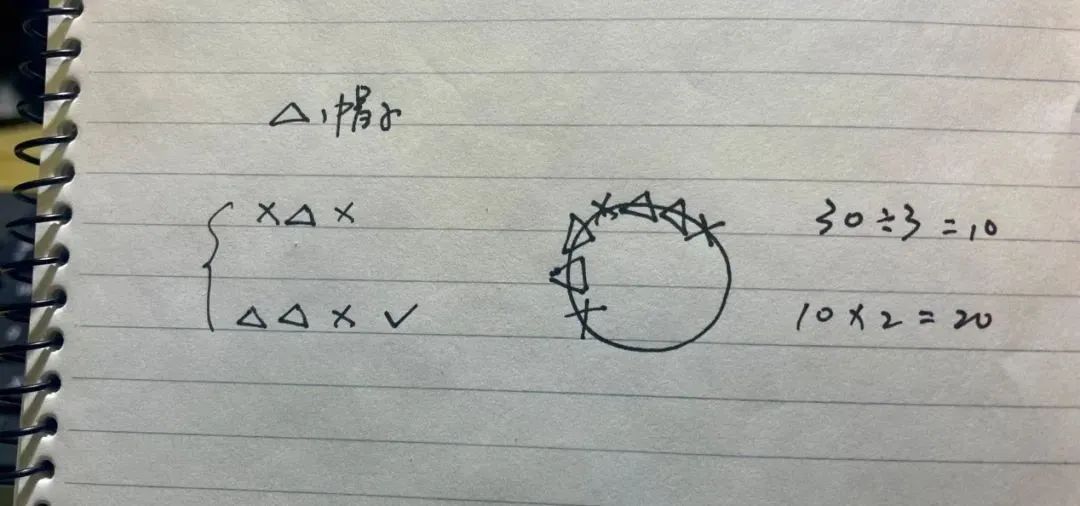 △, 帽子
×△× 30÷3=10
△△×✓ 10×2=20